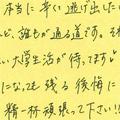 本当に辛く逃げ出した
ど、誰もが通る道です。そ
い大学生活が待ってます♪
になっても残る後悔に
精一杯頑張って下さい!!